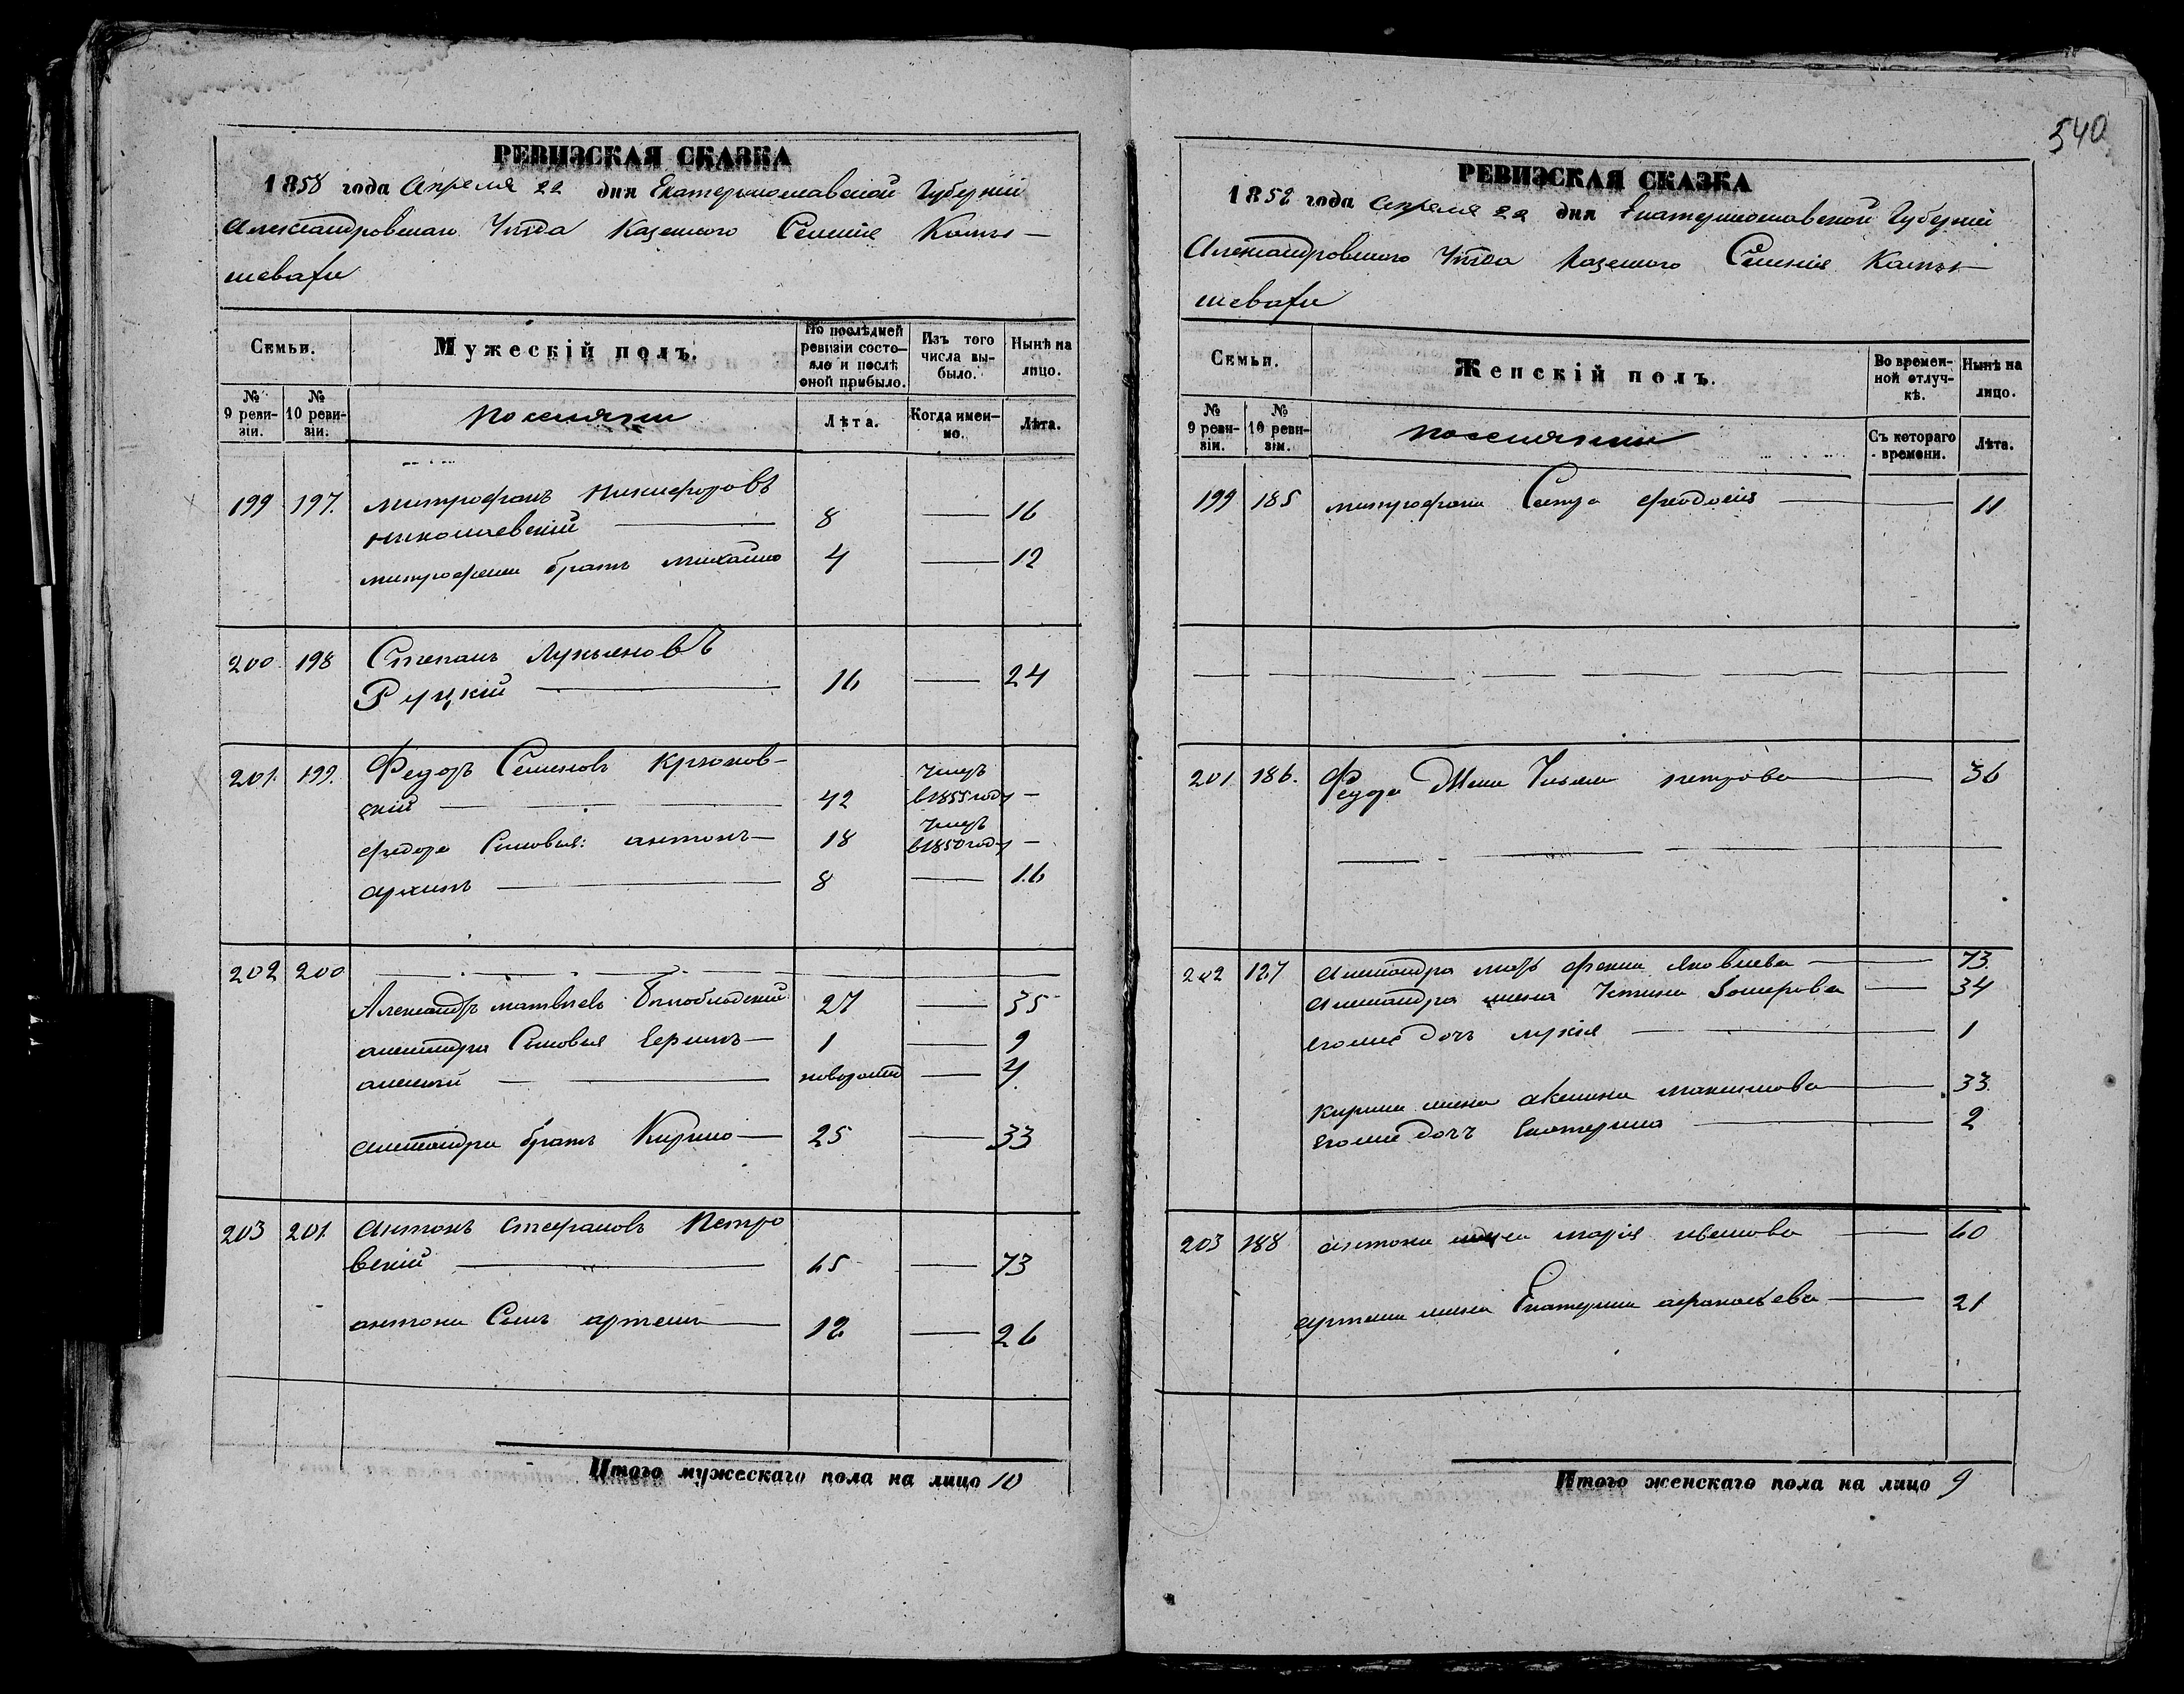 540
РЕВИЗСКАЯ СКАЗКА
1858 года Апреля 22 дня Екатеринославской Губерніи
Александровскаго Уѣзда Казенного Селенія Камы-
шевахи
Семьи.
Мужескій полъ.
По послѣдней ревизіи состо-
яло и послѣ оной прибыло.
Изъ того числа вы-
было.
Нынѣ на лицо.
№ 9 реви-
зіи.
№ 10 реви-
зіи.
поселяни
Лѣта.
Когда имен-
но.
Лѣта.
199 197. митрофанъ никифоровъ
николаевскій 8 — 16
митрофана братъ михайло 4 — 12
200 198 Степанъ Лукьяновъ
Руцкій 16 — 24
201. 199. Федоръ Семеновъ Крюков-
скій 42 умеръ в 1855 году —
федора Сыновья: антонъ 18 умеръ в 1850 году —
архипъ 8 — 16
202 200
Александръ матвѣевъ 27 — 35
александра Сыновья 1 — 9
алексѣй — 4
александра братъ Кирило 25 — 33
203 201. антонъ стефановъ Петро
вскій 65 — 73
антона Сынъ артемъ 12 — 26
Итого мужескаго пола на лицо 10
РЕВИЗСКАЯ СКАЗКА
1858 года Апреля 22 дня Екатеринославской Губерніи
Александровского Уѣзда Казенного Селенія Камы-
шевахи
Семьи.
Женскій полъ.
Во времен-
ной отлуч-
кѣ.
Нынѣ на лицо.
№ 9 реви-
зіи.
№ 10 реви-
зіи.
поселяни
Съ котораго времени.
Лѣта.
199 185 митрофана Сестра феодосія — 11
201 186. Федора Жена Ульяна петрова — 36
202 127 александра мать Яковлева — 73.
александра жена Устина — 34
егоже дочь лукія — 1
кирила жена акилина максимова — 33.
егоже дочъ Екатерина — 2
203 188 антона жена марія иванова — 60
артема жена Екатерина афанасьева — 21
Итого женскаго пола на лицо 9